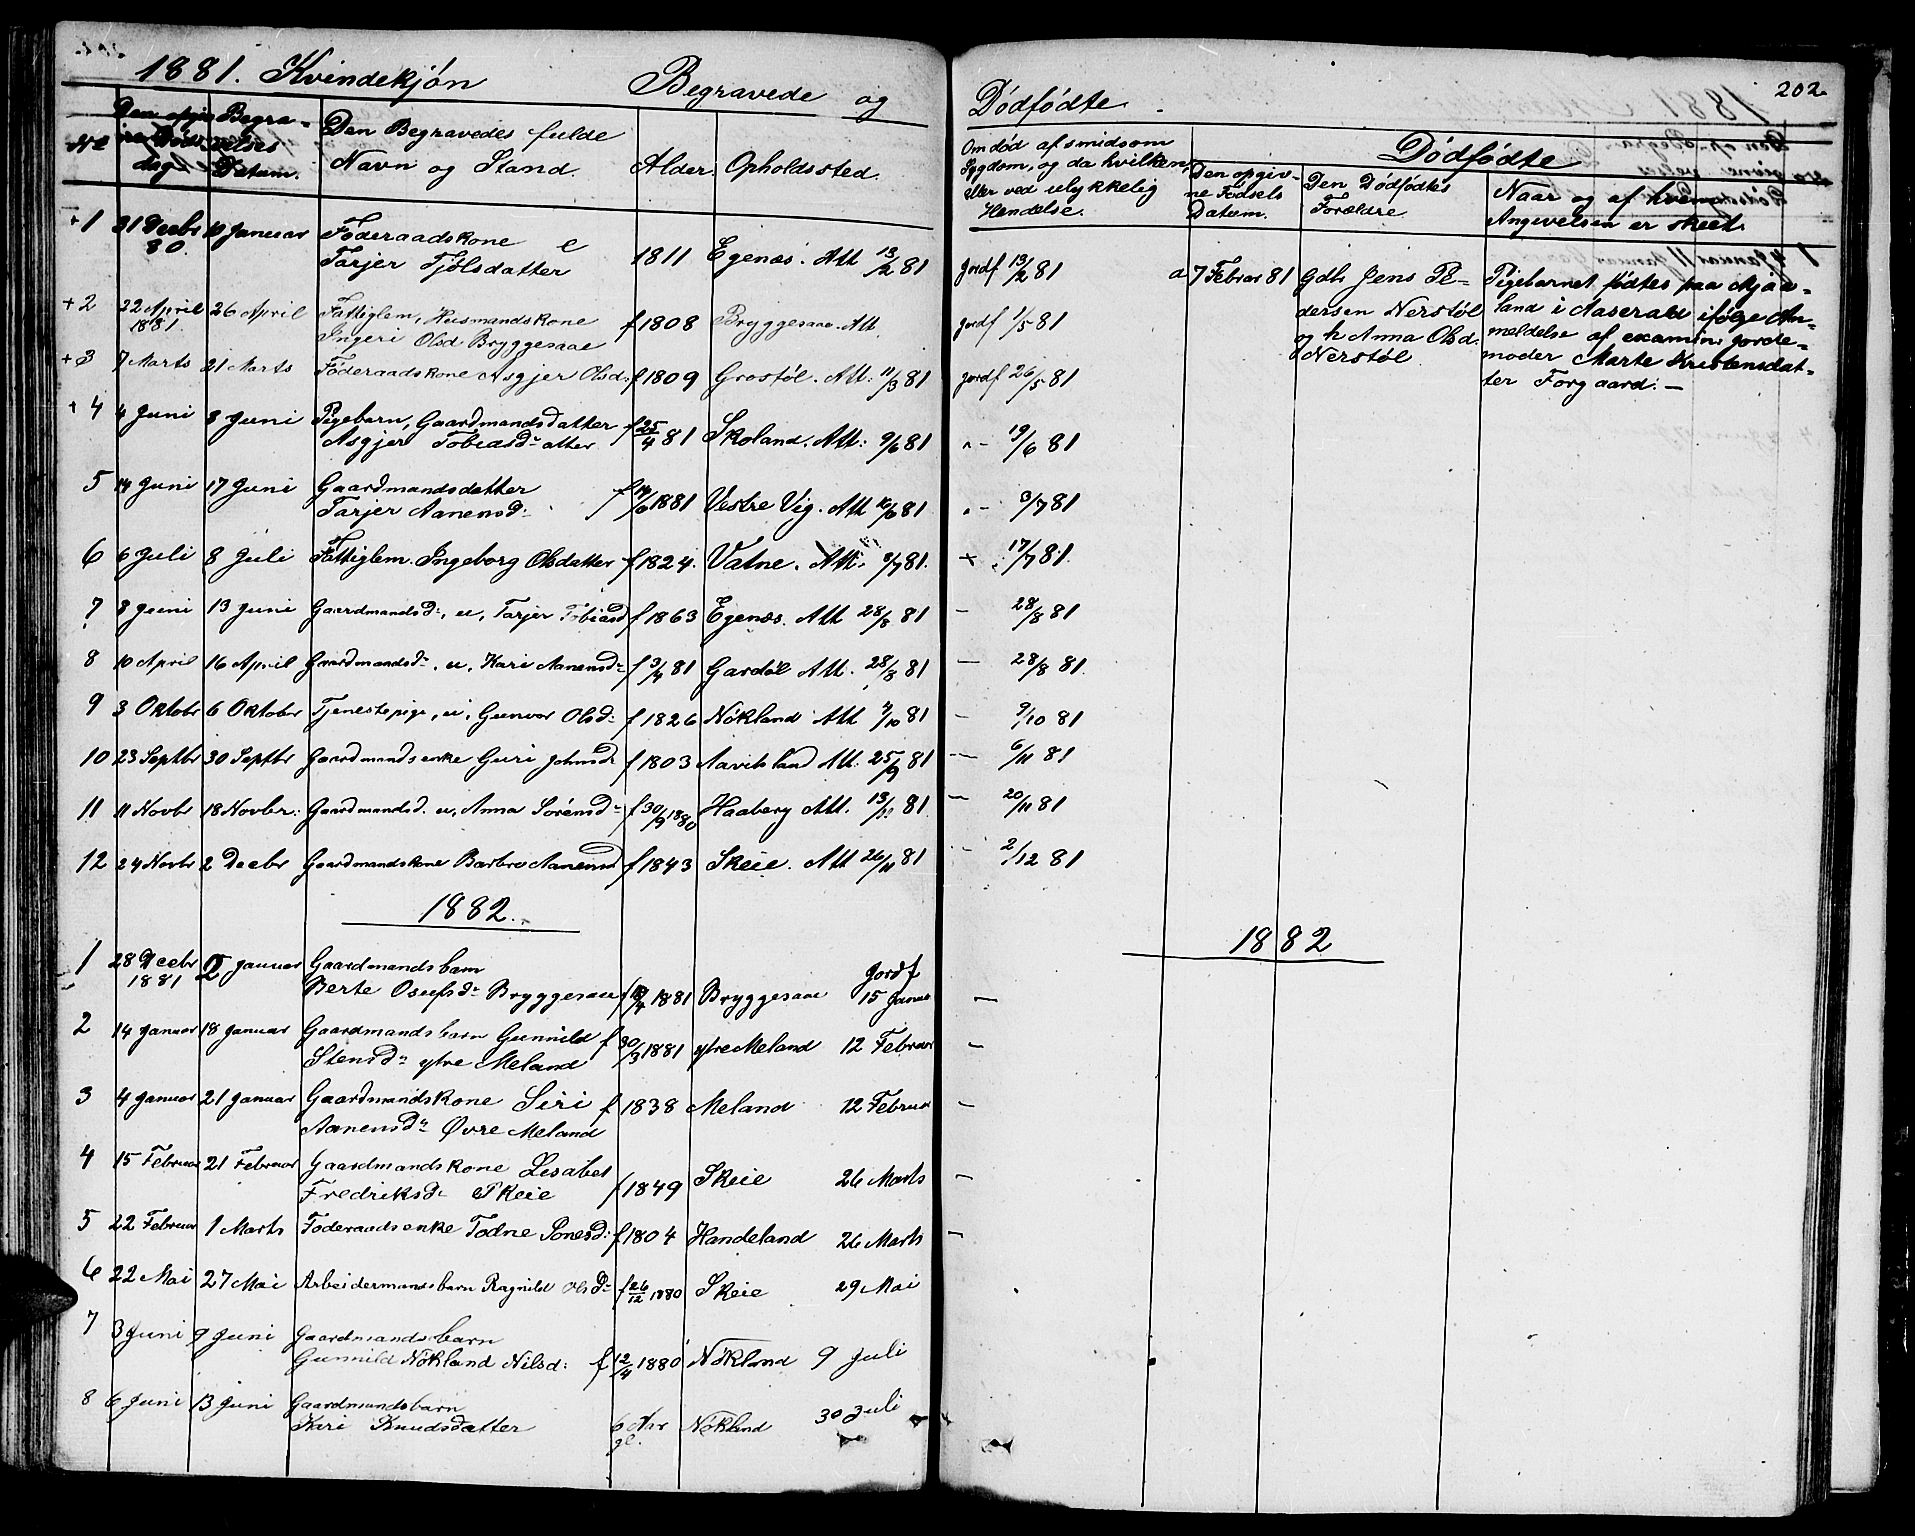 1881. Kvindekjön Begravede og Dödfödte. 202.
No
Den opgivne Döds dag
Begravelses Datum.
Den Begravedes fulde Navn og Stand.
Alder.
Opholdssted.
Om död af smidsom Sygdom, og da hvilken, eller ved ulykkelig Hendelse.
Dödfödte
Den opgivne Födsels Datum.
Den Dödfödtes Forældre.
Naar og af hvem Angivelsen er skeet.
+1 31 Decbr 80. 10 Januar Föderaadskone e
Tarjer Tjölsdatter 1811 Egenæs. Att 13/2 81 Jordf 13/2 81
a 7 Februar 81 Gdbr Jens Pe-
dersen Nerstöl
og h Anna Olsd.
Nerstöl
Pigebarnet födtes paa Mjåa-
land i Aaseral ifölge An-
meldelse af examin. jorde-
moder Marte Kristensdat-
ter Forgaard. —
+2 22 April 1881. 26 April Fattiglem, Husmandskone
Ingeri Olsd Bryggesaae f 1808 Bryggesaae. Att jordf 1/5 81
+3 7 Marts 21 Marts Föderaadskone Asgjer Olsd. f 1809 Grostöl. Att: 11/3 81 jordf 26/5 81
+4 4 Juni 8 Juni Pigebarn, Gaardmandsdatter
Asgjer Tobiasd-atter f 25/4 81 Skoland. Att: 9/6 81 „ - 19/6 81
5 14 Juni 17 Juni Gaardmandsdatter
Tarjer Aanensd: f 14/6 1881 Vestre Vig. Att 16/6 81 „ - 3/7 81
6 6 Juli 8 Juli Fattiglem. Ingeborg Olsdatter f 1824. Vatne. Att. 8/7 81. + 17/7 81.
7 8 Juni 13 Juni Gaardmandsd:, u, Tarjer Tobiasd f 1863 Egenæs. Att 28/8 81 — 28/8 81
8 10 April 16 April Gaardmandsd:, u, Kari Aanensd: f 3/4 81 Gardöl Att. 28/8 81 — 28/8 81.
9 3 Oktobr 6 Oktober Tjenestepige, u, Gunvor Olsd: f 1826 Nökland Att 4/10 81 — 9/10 81
10 23 Septbr 30 Septbr Gaardmandsenke Guri Johnsd f 1803 Aavitsland Att: 25/9 81 — 6/11 81
11 11 Novbr 18 Novber: Gaardmandsd. u, Anna Sörensd: f 30/9 1880 Haaberg Att. 13/11 81. — 20/11 81
12 24 Novbr 2 Decbr Gaardmandskone Barbro Aanensd f 1843 Skeie. Att 26/11 81 — 2/12 81
1882. 1882
1 28 Decbr 1881 2 Januar Gaardmandsbarn
Berte Osufsd: Bryggesaae 1881 Bryggesaae Jordf 15 Januar —
2 14 Januar 18 Januar Gaardmandsbarn Gunnild
Stensd: ytre Meland f 30/3 1881 ytre Meland 12 Februar —
3 4 Januar 21 Januar Gaardmandskone Siri
Aanensd: Övre Meland f 1838 Meland 12 Februar —
4 15 Februar 21 Februar Gaardmandskone Lisabet
Fredriksd: Skeie f 1849 Skeie 26 Marts —
5 22 Februar 1 Marts Föderaadsenke Todne Sonesd: f 1804 Handeland 26 Marts —
6 22 Mai 27 Mai Arbeidermandsbarn Ragnild Olsd: f 26/12 1880 Skeie 29 Mai
7 3 Juni 9 Juni Gaardmandsbarn
Gunnild Nökland Nilsd: f 12/4 1880 Nökland 9 Juli
8 6 Juni 13 Juni Gaardmandsbarn
Kari Knudsdatter 6 Aar gl. Nökland 30 Juli